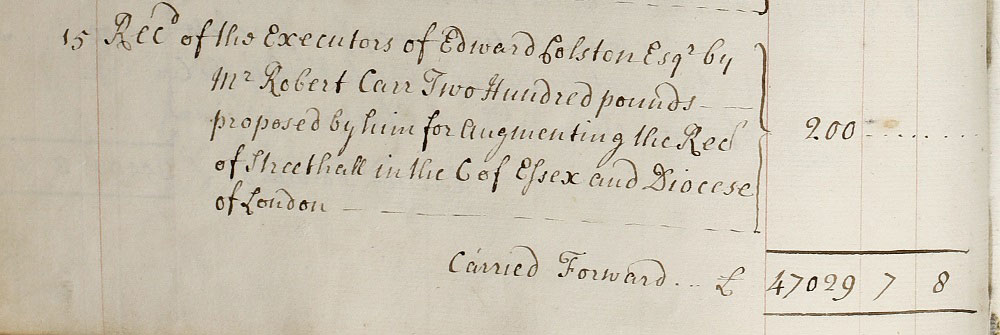 15 Recd of the Executors of Edward Colston Esqr by
Mr Robert Carr Two Hundred pounds
proposed by him for Augmenting the Rec 200
of Streethall in the C of Essex and Diocese
of London
Carried Forward .. £ 47029 7 8